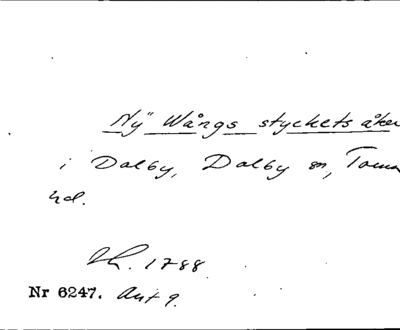 "Ny" Wångs styckets åker
i Dalby, Dalby sn, Torna
hd.
Lh. 1788
Nr 6247. Akt 9.